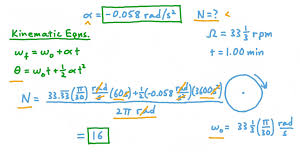 α = -0.058 rad/s² N = ?
Kinematic Eqns.
ω_f = ω_o + αt
θ = ω_o t + ½αt²
Ω = 33 ⅓ rpm
t = 1.00 min
N = 33.33 (π/30) rad/s (60s) + ½ (-0.058 rad/s²)(3600s²) / 2π rad
= 16
ω_o = 33 ⅓ (π/30) rad/s